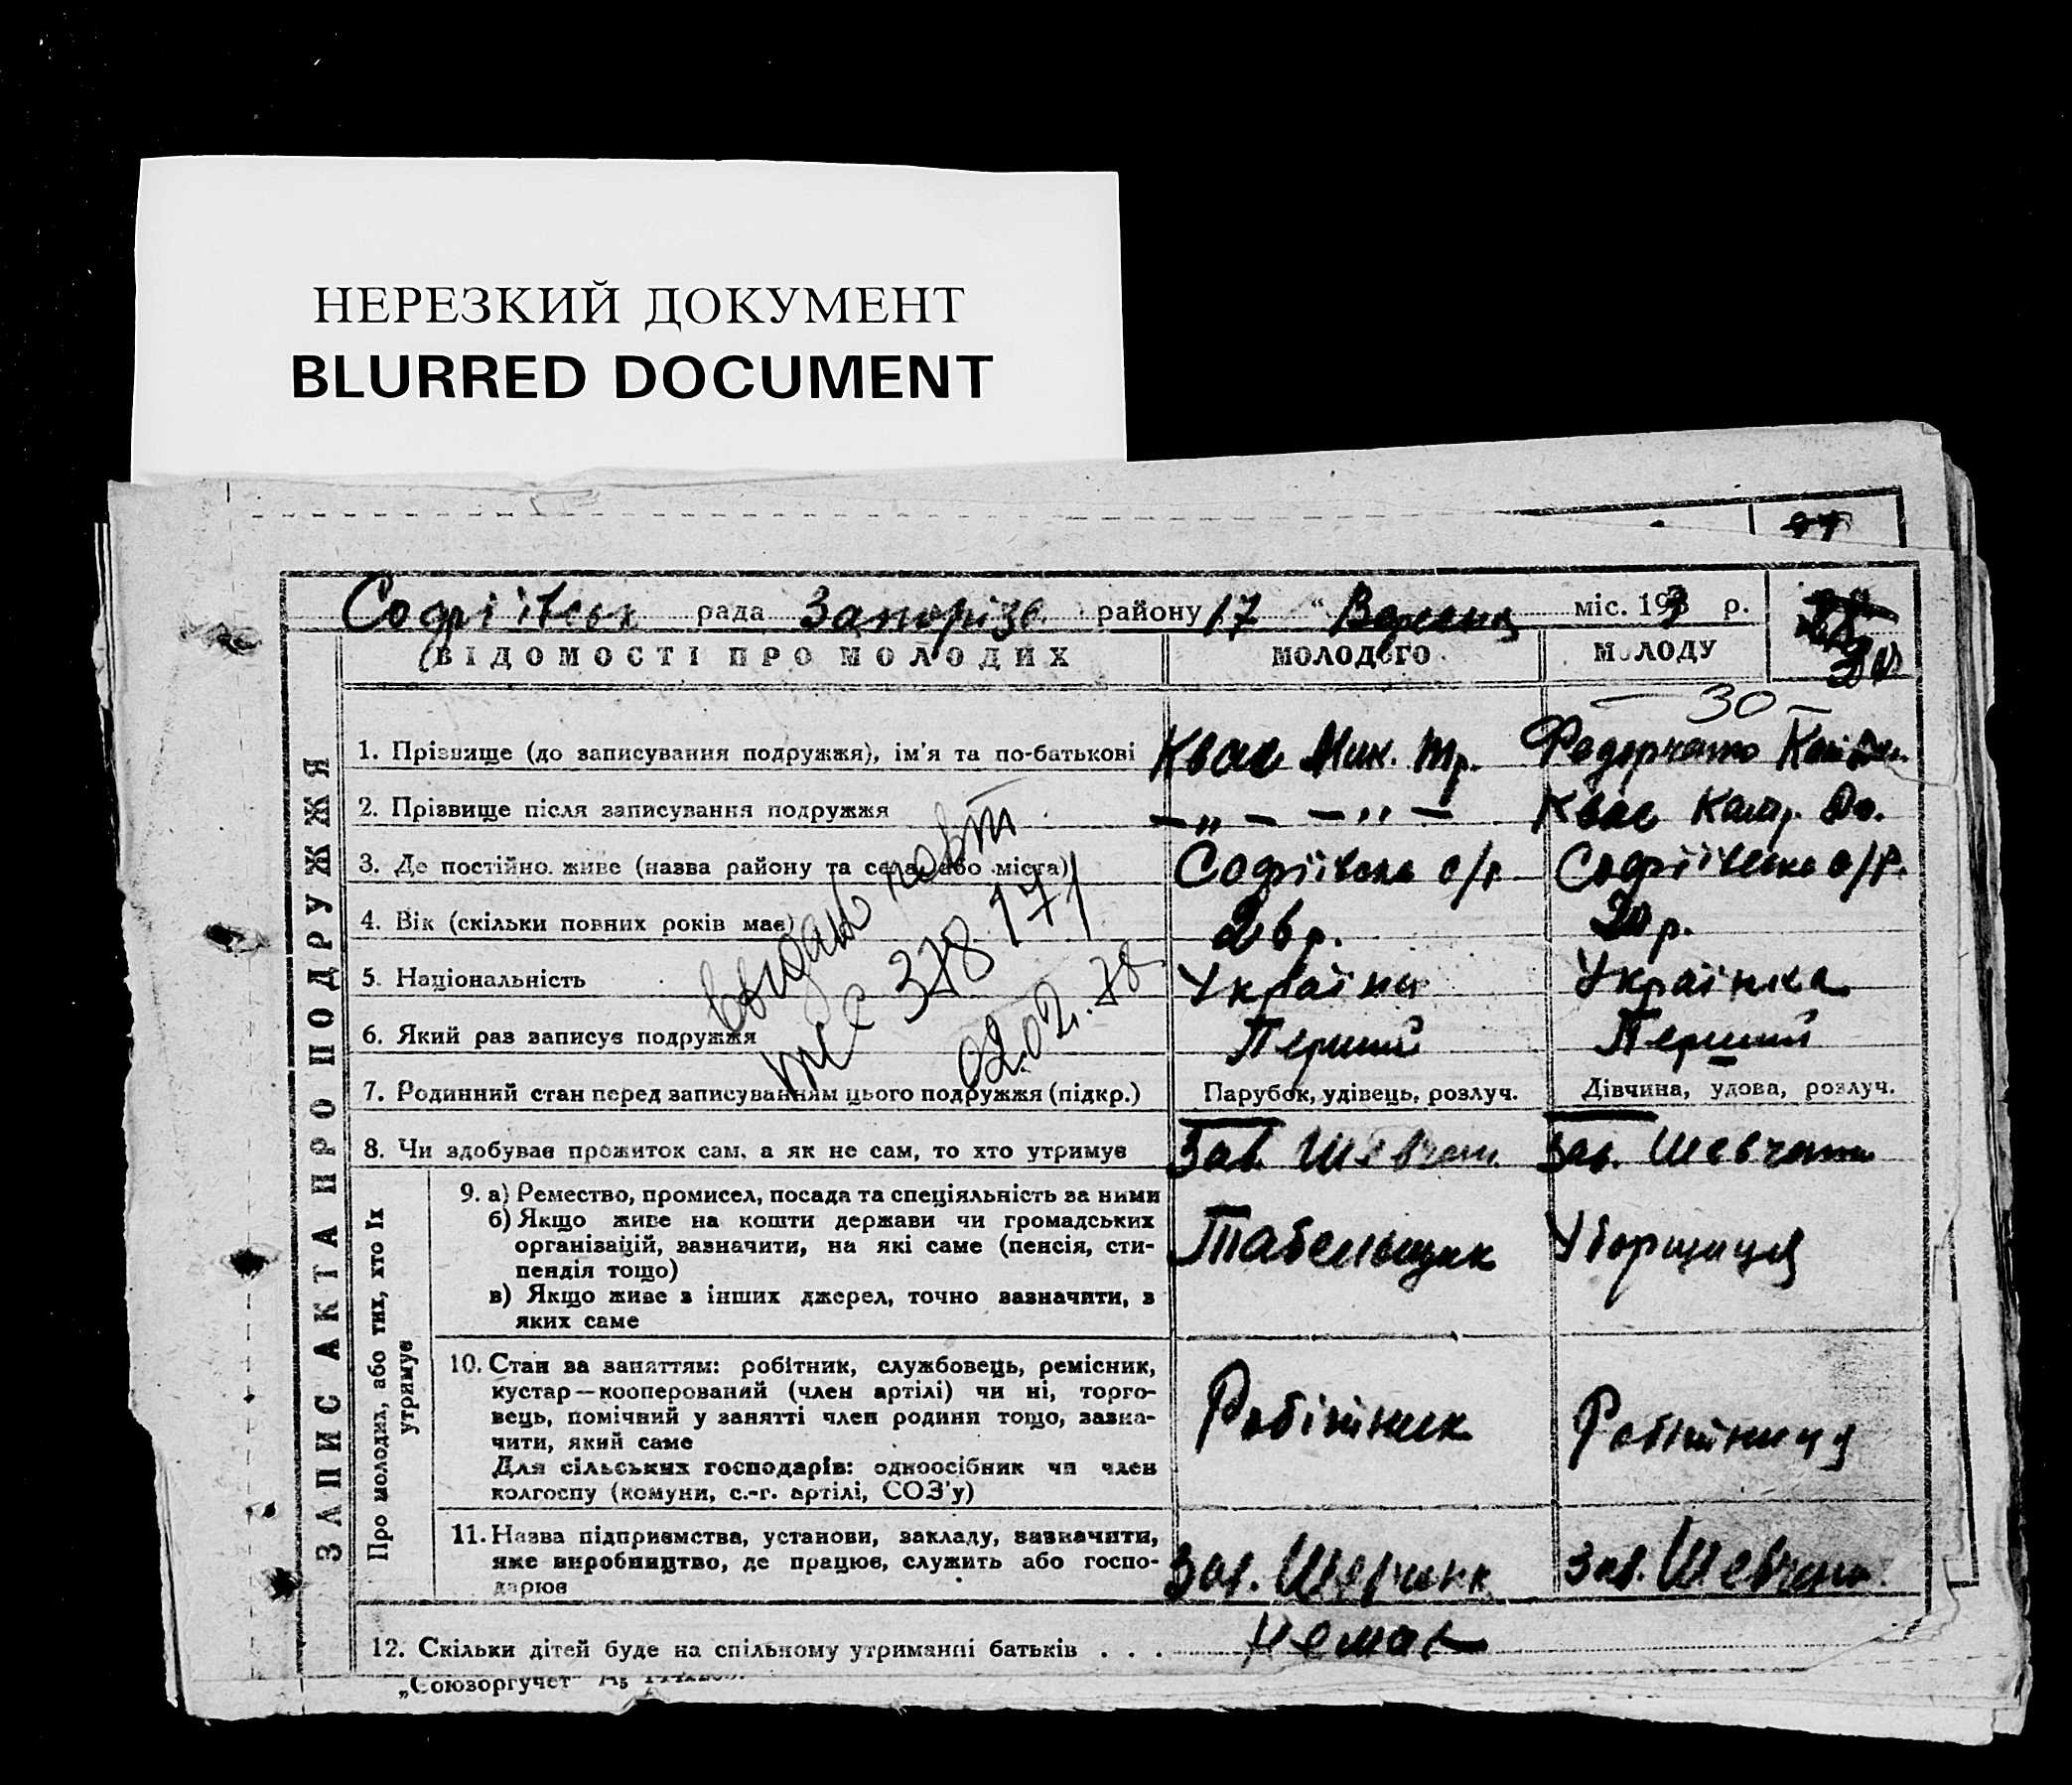 НЕРЕЗКИЙ ДОКУМЕНТ
BLURRED DOCUMENT
Софіївськ рада Запорізс. району 17 " Вересня міс. 193 р.
ВІДОМОСТІ ПРО МОЛОДИХ МОЛОДОГО МОЛОДУ
— 30 —
ЗАПИС АКТА ПРО ПОДРУЖЖЯ
1. Прізвище (до записування подружжя), ім'я та по-батькові Квас Мик. Тр. Федорченко
2. Прізвище після записування подружжя — „ — — „ — Квас
3. Де постійно живе (назва району та села, або міста) Софіївська с/р. Софіївська с/р.
4. Вік (скільки повних років має) 26 р. 20 р.
5. Національність Україн Українка
6. Який раз записує подружжя Перший Перший
7. Родинний стан перед записуванням цього подружжя (підкр.) Парубок, удівець, розлуч. Дівчина, удова, розлуч.
8. Чи здобуває прожиток сам, а як не сам, то хто утримує Зав. Шевчен. Зав. Шевченко
Про молодих, або тих, хто їх утримує
9. а) Ремество, промисел, посада та спеціяльність за ними
б) Якщо живе на кошти держави чи громадських
організацій, зазначити, на які саме (пенсія, сти-
пендія тощо)
в) Якщо живе з інших джерел, точно зазначити, з
яких саме
Табельщик Уборщиця
10. Стан за заняттям: робітник, службовець, ремісник,
кустар—кооперований (член артілі) чи ні, торго-
вець, помічний у занятті член родини тощо, зазна-
чити, який саме
Для сільських господарів: одноосібник чи член
колгоспу (комуни, с.-г. артілі, СОЗ'у)
Робітник Робітниця
11. Назва підприємства, установи, закладу, зазначити,
яке виробництво, де працює, служить або госпо-
дарює
Зав. Шевченк Зав. Шевченк.
12. Скільки дітей буде на спільному утриманні батьків . . . Немає
„Союзоргучет"
выдано повт
378171
02.02.78